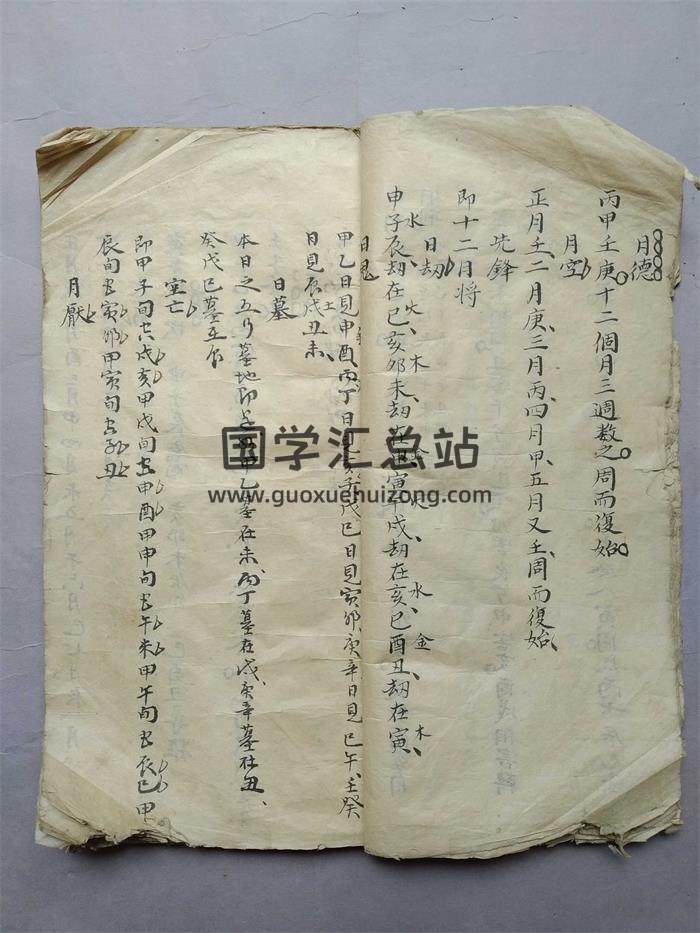 月德
丙甲壬庚十二個月三週数之周而復始
月空
正月壬、二月庚、三月丙、四月甲、五月又壬、周而復始、
先鋒
即十二月將
日劫
水 火 木 金 火 水 金 木
申子辰劫在巳、亥卯未劫在申、寅午戌劫在亥、巳酉丑、劫在寅、
日鬼
甲乙日見申酉、丙丁日見亥子、戊己日見寅卯、庚辛日見巳午、壬癸
日見辰戌丑未、
土
日墓
本日之五行墓地即是如甲乙墓在未、丙丁墓在戌、庚辛墓在丑、
癸戊己墓在辰
空亡
即甲子旬戌亥甲戌旬申酉甲申旬午未甲午旬辰巳甲
辰旬寅卯甲寅旬子丑
月厭
国学汇总站
www.guoxuehuizong.com